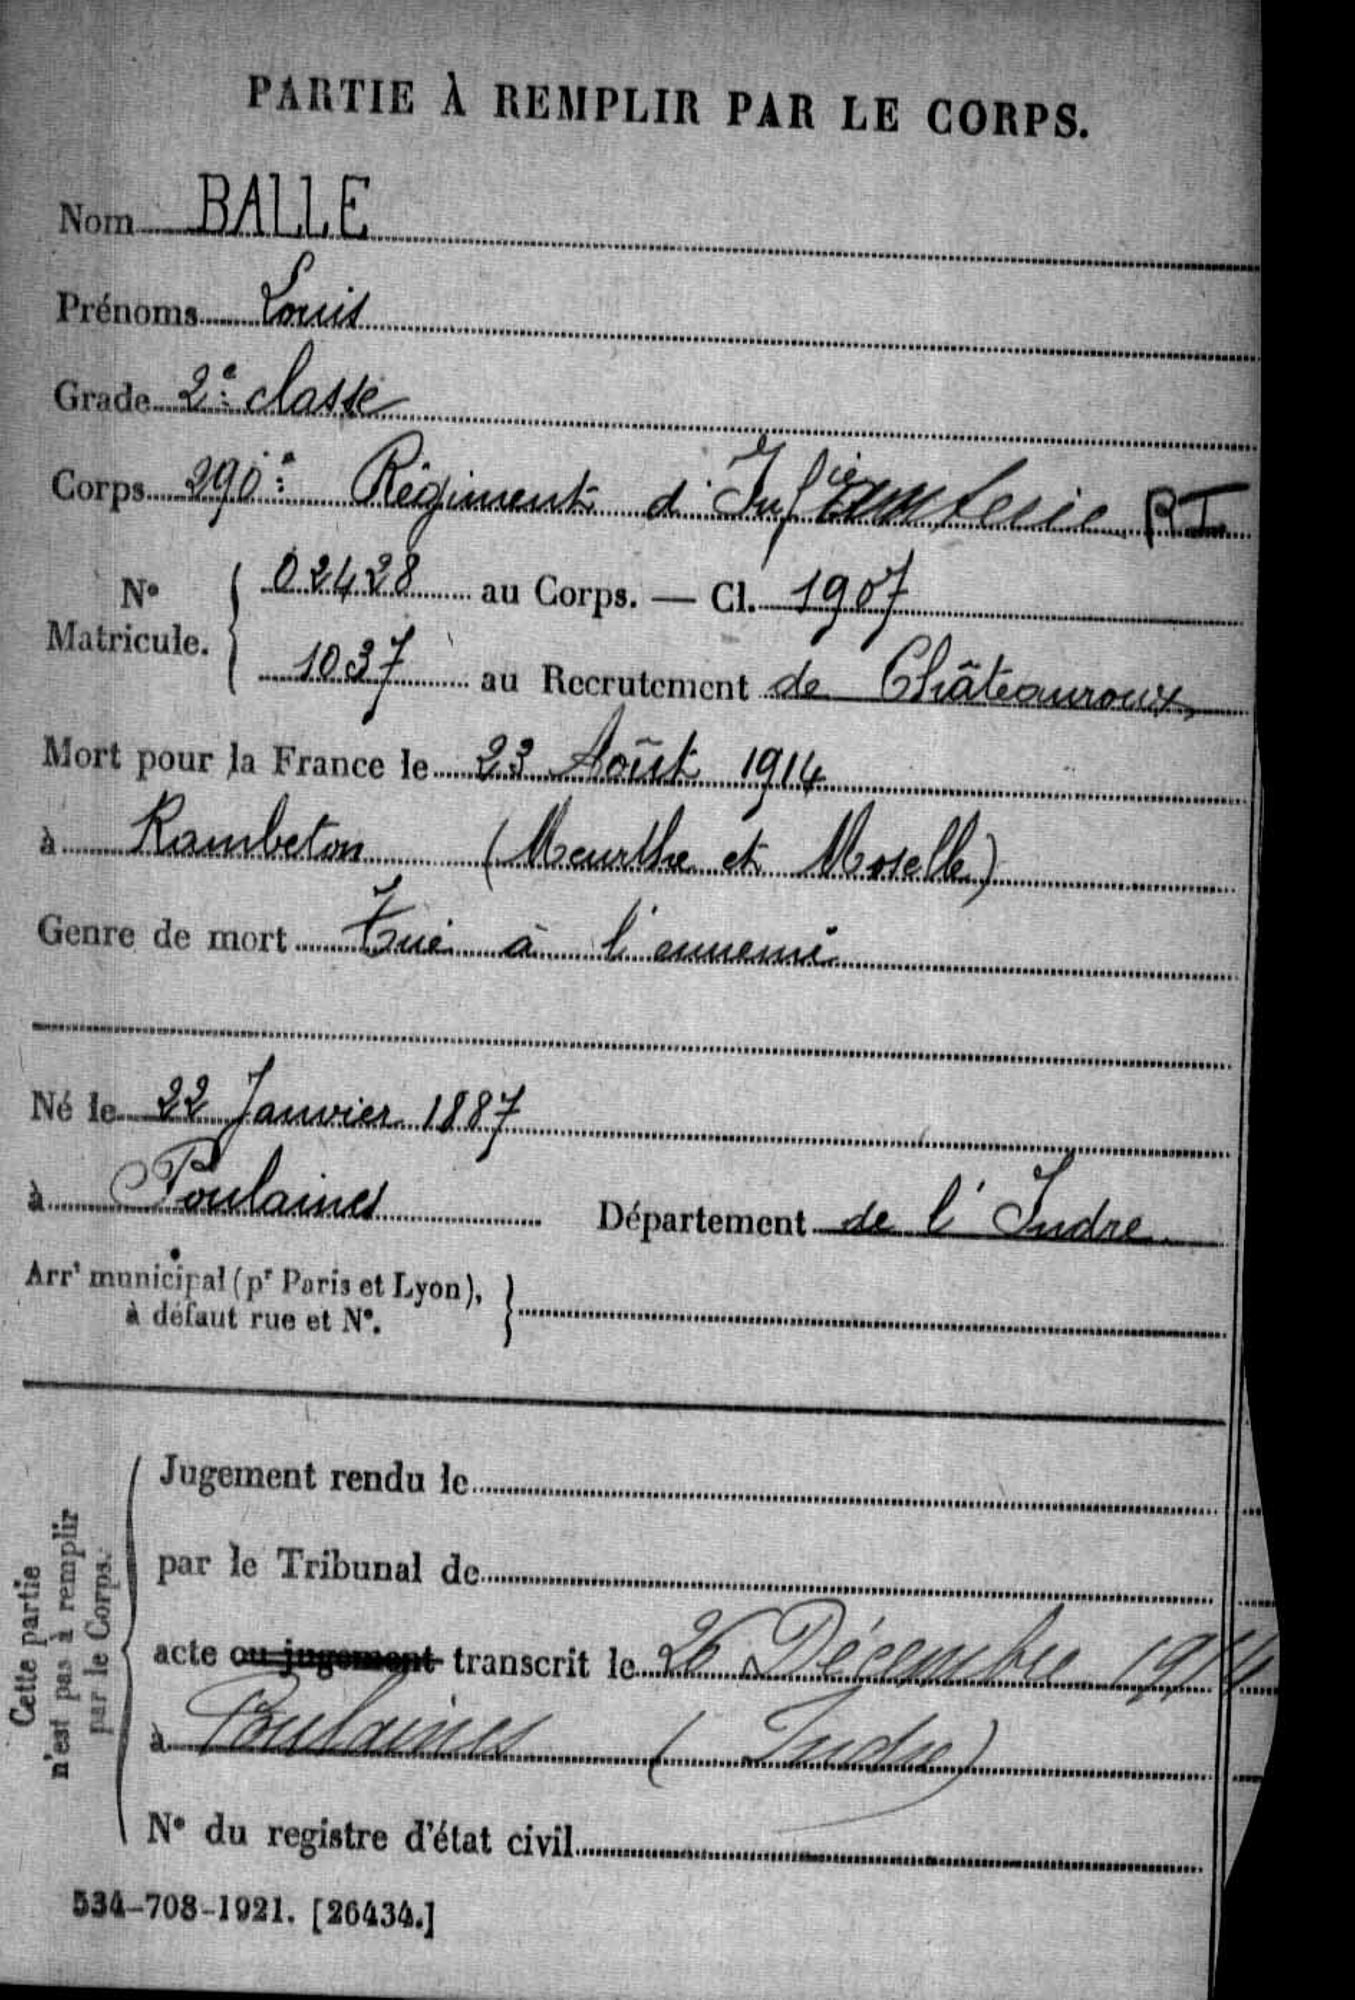 PARTIE À REMPLIR PAR LE CORPS.
Nom BALLE
Prénoms Louis
Grade 2e classe
Corps 290e Régiment d'Infanterie RI
No Matricule. 02428 au Corps. — Cl. 1907
1037 au Recrutement de Châteauroux
Mort pour la France le 23 Août 1914
à Rambeton (Meurthe et Moselle)
Genre de mort Tué à l'ennemi
Né le 22 Janvier 1887
à Poulaines Département de l'Indre
Arrt municipal (pr Paris et Lyon),
à défaut rue et N°.
Cette partie
n'est pas à remplir
par le Corps.
Jugement rendu le
par le Tribunal de
acte ou jugement transcrit le 26 Décembre 1914
à Poulaines (Indre)
N° du registre d'état civil
534-708-1921. [26434.]